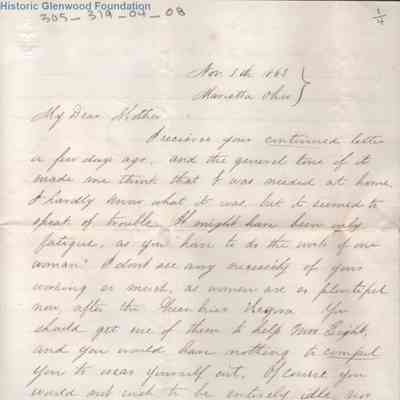 Historic Glenwood Foundation
305-319-04-08
1/4
Nov. 5th 1863
Marietta Ohio
My Dear Mother
I received your continued letter
a few days ago, and the general tone of it
made me think that I was needed at home.
I hardly know what it was, but it seemed to
speak of trouble. It might have been only
fatigue, as you "have to do the work of one
woman". I don't see any necessity of your
working so much, as women are so plentiful
now, after the
should get one of them to help Mrs.
and you would have nothing to compel
you to wear yourself out. Of course you
would not wish to be entirely idle, nor